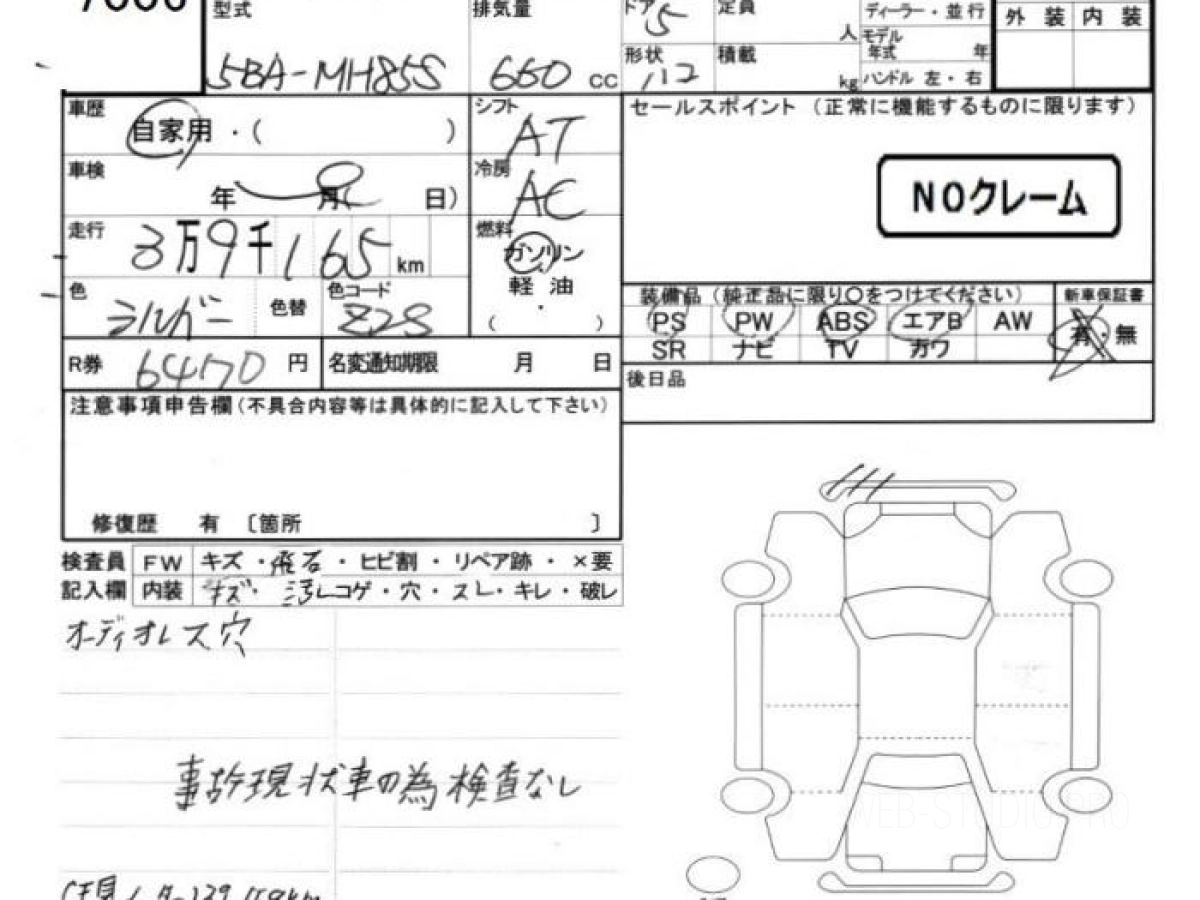 型式 排気量 ドア 5 定員 人 ディーラー・並行 外装 内装
モデル年式 年
5BA-MH85S 660 cc 形状 積載 kg ハンドル 左・右
車歴 自家用・( ) シフト AT セールスポイント (正常に機能するものに限ります)
車検 年 月 日) 冷房 AC NOクレーム
走行 3万9千165km 燃料 ガソリン
軽油
・
( )
色 シルバー 色替 色コード Z2S
装備品 (純正品に限り○をつけてください) 新車保証書
PS PW ABS エアB AW 有・無
SR ナビ TV カワ
R券 6470 円 名変通知期限 月 日
後日品
注意事項申告欄(不具合内容等は具体的に記入して下さい)
修復歴 有 〔箇所 〕
検査員 FW キズ・飛石・ヒビ割・リペア跡・×要
記入欄 内装 キズ・汚レ コゲ・穴・スレ・キレ・破レ
オーディオレス穴
事故現状車の為検査なし
WEB-STUDIO.PRO